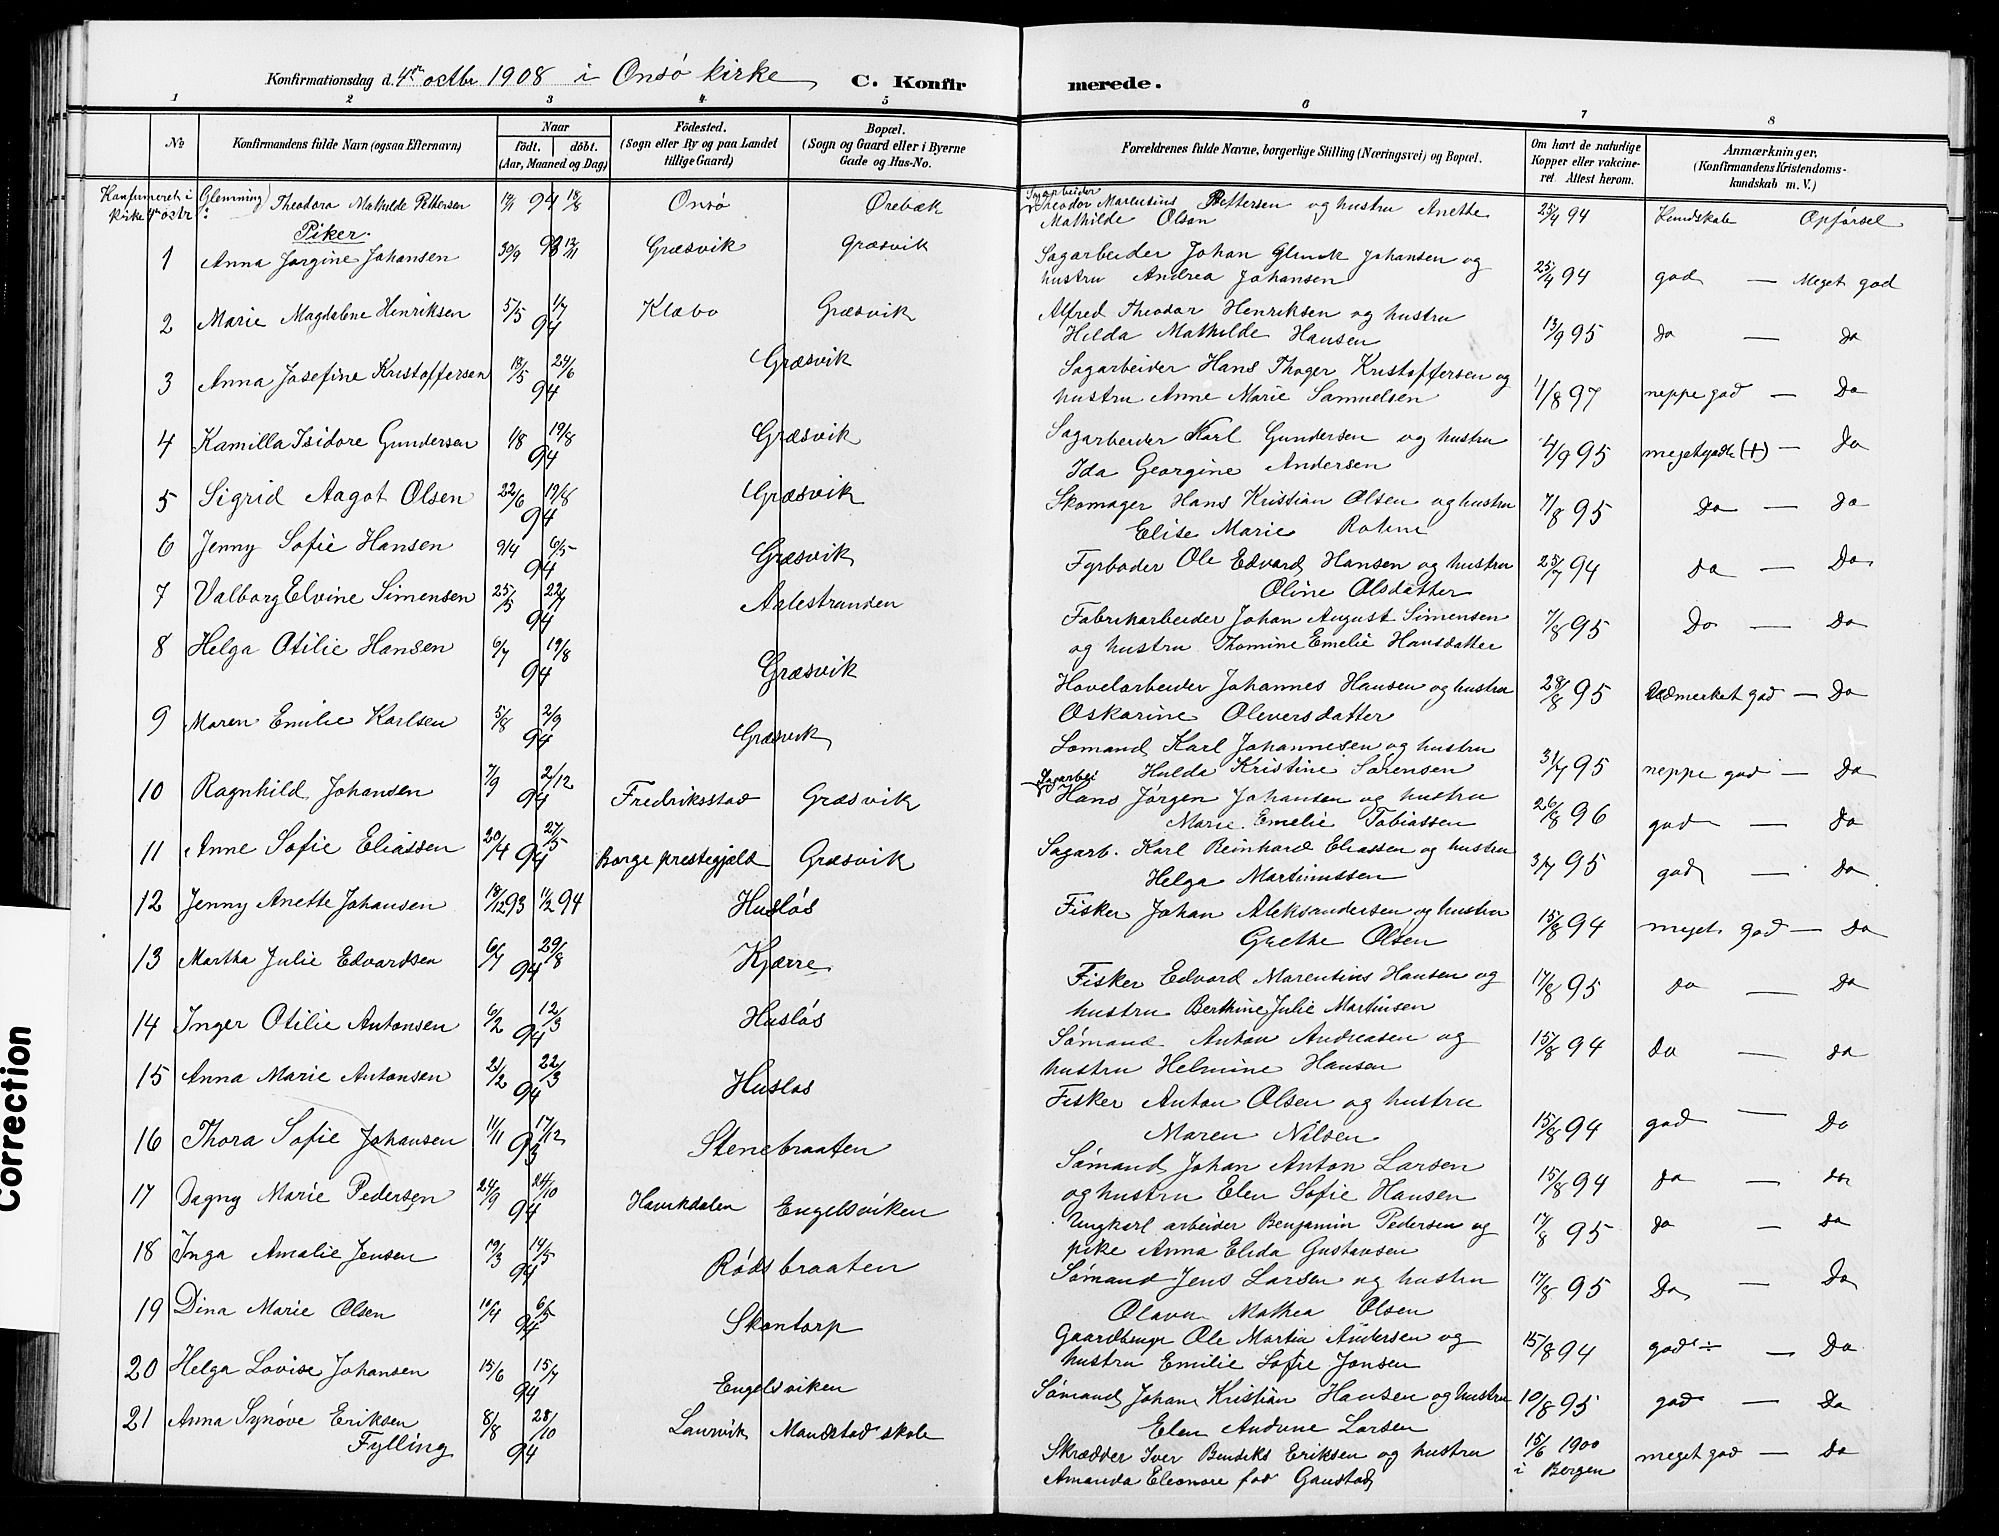 Konfirmationsdag d. 4de octbr 1908 i Onsö kirke C. Konfirmerede.
1 2 3 4 5 6 7 8
No Konfirmandens fulde Navn (ogsaa Efternavn) Naar födt. döbt. (Aar, Maaned og Dag) Födested. (Sogn eller By og paa Landet tillige Gaard) Bopæl. (Sogn og Gaard eller i Byerne Gade og Hus-No. Forældrenes fulde Navne, borgerlige Stilling (Næringsvei) og Bopæl. Om havt de naturlige Kopper eller vakcineret. Attest herom. Anmærkninger. (Konfirmandens Kristendomskundskab m. V.)
Konfirmeret i Glemming kirke 4de octr: Theodora Mathilde Pettersen 94 18/8 Onsö Örebæk Theodor Marentius Pettersen og hustru Anette Mathilde Olsen 25/4 94 Kundskab Opförsel
Piker.
1 Anna Jörgine Johansen 30/9 93 12/11 Græsvik Græsvik Sagarbeider Johan Johansen og hustru Andrea Johansen 25/4 94 god — Meget god
2 Marie Magdalene Henriksen 5/5 1/7 94 Klæbo Græsvik Alfred Theodor Henriksen og hustru Hilda Mathilde Hansen 13/9 95 do — do
3 Anna Josefine Kristoffersen 18/5 24/6 94 Græsvik Sagarbeider Hans Thoger Kristoffersen og hustru Anne Marie Samuelsen 1/8 97 neppe god — Do
4 Kamilla Isidore Gundersen 1/8 19/8 94 Græsvik Sagarbeider Karl Gundersen og hustru Ida Georgine Andersen 4/9 95 meget gode (+) — Do
5 Sigrid Aagot Olsen 22/6 19/8 94 Græsvik Skomager Hans Kristian Olsen og hustru Elise Marie 7/8 95 Do — Do
6 Jenny Sofie Hansen 9/4 6/5 94 Græsvik Fyrböder Ole Edvard Hansen og hustru Oline Olsdatter 25/7 94 do — Do
7 Valborg Elvine Simensen 25/5 22/7 94 Aalestranden Fabrikarbeider Johan August Simensen og hustru Thomine Emelie Hansdatter 7/8 95 Do — Do
8 Helga Otilie Hansen 6/7 19/8 94 Græsvik Hövelarbeider Johannes Hansen og hustru Oskarine Oleversdatter 28/8 95 Udmerket god — Do
9 Maren Emilie Karlsen 5/8 2/9 94 Græsvik Sömand Karl Johannesen og hustru Hulda Kristine Sörensen 31/7 95 neppe god — Do
10 Ragnhild Johansen 7/9 2/12 94 Fredriksstad Græsvik Sagarbei Hans Jörgen Johansen og hustru Marie Emelie Tobiassen 26/8 96 god — Do
11 Anne Sofie Eliassen 20/4 27/5 94 Borge prestegjeld Græsvik Sagarb. Karl Reinhard Eliassen og hustru Helga Martinussen 3/7 95 god — Do
12 Jenny Anette Johansen 18/12 93 11/2 94 Huslös Fisker Johan Aleksandersen og hustru Grethe Olsen 15/8 94 meget god — Do
13 Martha Julie Edvardsen 6/7 29/8 94 Kjærre Fisker Edvard Marentius Hansen og hustru Berthine Julie Martinsen 17/8 95 Do — Do
14 Inger Otilie Antonsen 6/2 12/3 94 Huslös Sömand Anton Andreasen og hustru Helmine Hansen 15/8 94 Do — do
15 Anna Marie Antonsen 21/2 22/3 94 Huslös Fisker Anton Olsen og hustru Maren Nilsen 15/8 94 god — Do
16 Thora Sofie Johansen 11/11 17/12 93 Stenebraaten Sömand Johan Anton Larsen og hustru Elen Sofie Hansen 15/8 94 do — do
17 Dagny Marie Pedersen 24/9 24/10 94 Havikdalen Engelsviken Ungkarl arbeider Benjamin Pedersen og pike Anna Elida Gustavsen 17/8 95 do — do
18 Inga Amalie Jensen 19/3 14/5 94 Rödsbraaten Sömand Jens Larsen og hustru Olava Mathea Olsen 17/8 95 Do — Do
19 Dina Marie Olsen 10/4 6/5 94 Skontorp Gaardbruger Ole Martin Andersen og hustru Emilie Sofie Jonsen 15/8 94 god ÷ — Do
20 Helga Lovise Johansen 15/6 15/7 94 Engelsviken Sömand Johan Kristian Hansen og hustru Elen Andrine Larsen 10/8 95 god — Do
21 Anna Synöve Eriksen Fylling 8/8 28/10 94 Laurvik Mandstad skole Skrædder Iver Bendiks Eriksen og hustru Amanda Eleonore föd Gaustad 15/6 1900 i Bergen meget god — Do
Correction